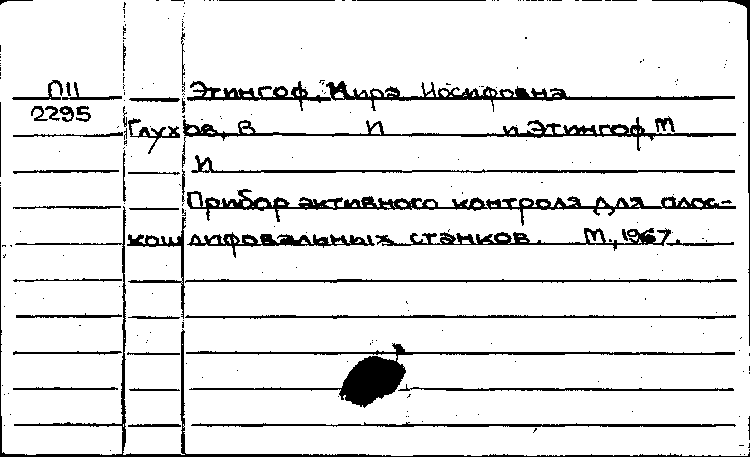 П11 Этингоф, Мира Иосифовна
2295
Глухов, В И и Этингоф, М
И
Прибор активного контроля для плос-
кошлифовальных станков. М., 1967.